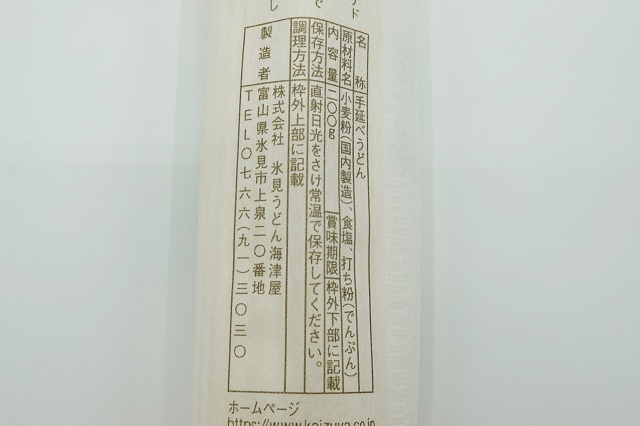 名称 手延べうどん
原材料名 小麦粉(国内製造)、食塩、打ち粉(でんぷん)
内容量 二〇〇g 賞味期限 枠外下部に記載
保存方法 直射日光をさけ常温で保存してください。
調理方法 枠外上部に記載
製造者 株式会社 氷見うどん海津屋
富山県氷見市上泉二〇番地
TEL〇七六六(九一)三〇三〇
ホームページ
https://www.kaizuya.co.jp